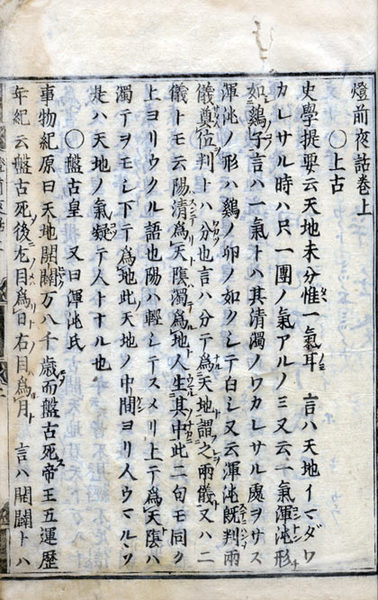 燈前夜話卷上
〇上古
史學提要云天地未分惟一氣耳 言ハ天地イマダワ
カレサル時ハ只一團ノ氣アルノミ又云一氣渾沌形
如鷄子言ハ一氣トハ其清濁ノワカレサル處ヲサス
渾沌ノ形ハ鷄ノ卵ノ如クシテ白シ又云渾沌既判兩
儀奠位判トハ分也言ハ分テ爲天地謂之兩儀又ハ二
儀トモ云陽清爲天陰濁爲地人生其中此二句モ同ク
上ヨリウクル語也陽ハ輕シテスメリ上テ爲天陰ハ
濁テヲモシ下テ爲地此天地ノ中間ヨリ人ウマルヽソ
是ハ天地ノ氣凝テ人トナル也
〇盤古皇 又曰渾沌氏
事物紀原曰天地開闢万八千歳而盤古死帝王五運歴
年紀云盤古死後左目爲日右目爲月 言ハ開闢トハ